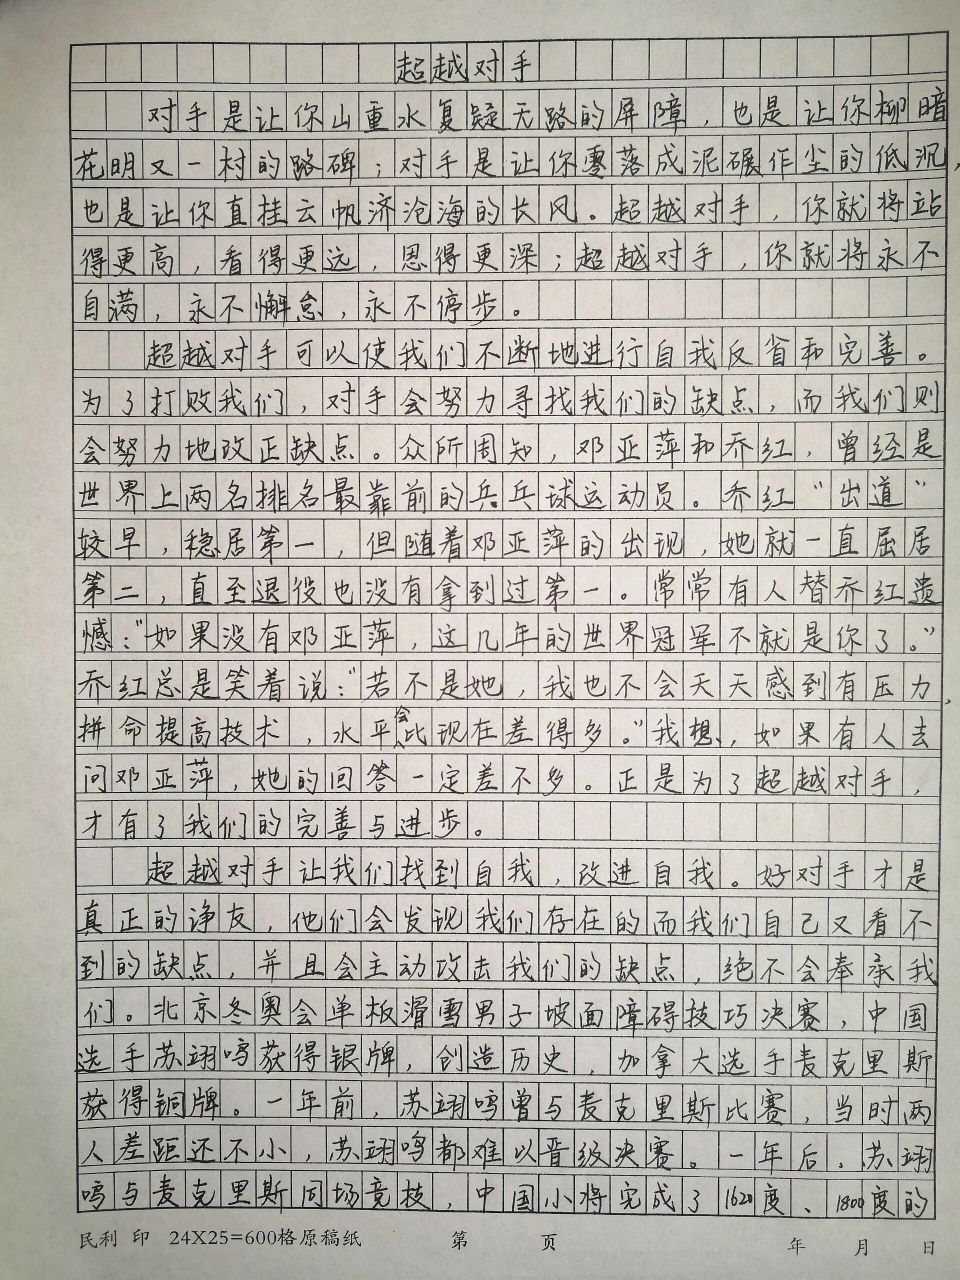 超越对手
对手是让你山重水复疑无路的屏障，也是让你柳暗
花明又一村的路碑；对手是让你零落成泥碾作尘的低沉，
也是让你直挂云帆济沧海的长风。超越对手，你就将站
得更高，看得更远，思得更深；超越对手，你就将永不
自满，永不懈怠，永不停步。
超越对手可以使我们不断地进行自我反省和完善。
为了打败我们，对手会努力寻找我们的缺点，而我们则
会努力地改正缺点。众所周知，邓亚萍和乔红，曾经是
世界上两名排名最靠前的乒乓球运动员。乔红“出道”
较早，稳居第一，但随着邓亚萍的出现，她就一直屈居
第二，直至退役也没有拿到过第一。常常有人替乔红遗
憾：“如果没有邓亚萍，这几年的世界冠军不就是你了。”
乔红总是笑着说：“若不是她，我也不会天天感到有压力，
拼命提高技术，水平会比现在差得多。”我想，如果有人去
问邓亚萍，她的回答一定差不多。正是为了超越对手，
才有了我们的完善与进步。
超越对手让我们找到自我，改进自我。好对手才是
真正的诤友，他们会发现我们存在的而我们自己又看不
到的缺点，并且会主动攻击我们的缺点，绝不会奉承我
们。北京冬奥会单板滑雪男子坡面障碍技巧决赛，中国
选手苏翊鸣获得银牌，创造历史，加拿大选手麦克里斯
获得铜牌。一年前，苏翊鸣曾与麦克里斯比赛，当时两
人差距还不小，苏翊鸣都难以晋级决赛。一年后，苏翊
鸣与麦克里斯同场竞技，中国小将完成了1620度、1800度的
民利 印 24X25=600格原稿纸 第 页 年 月 日